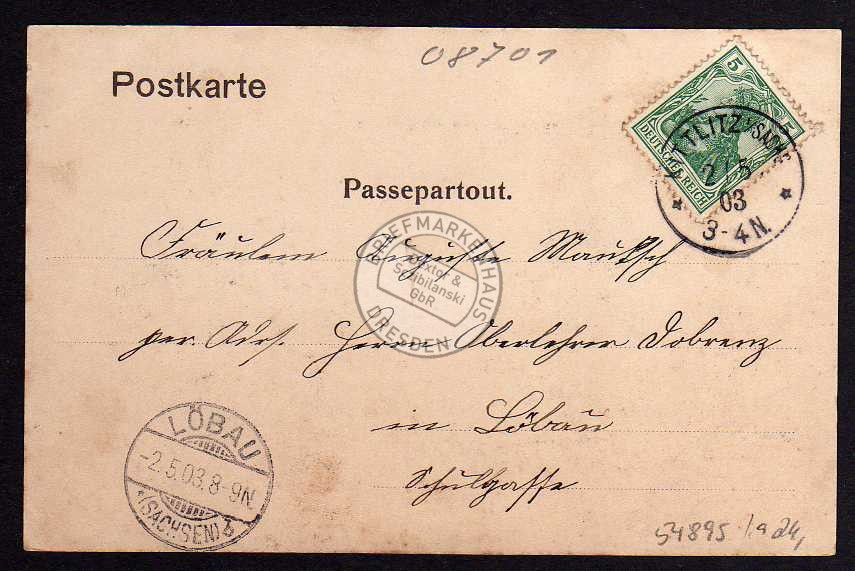 08701
Postkarte
5
5
DEUTSCHES REICH
TLITZ
2/5
03
3-4 N.
Passepartout.
Fräulein Auguste
per. Adr. Herrn Oberlehrer Dobrenz
in Löbau
Schulgasse
BRIEFMARKENHAUS
Sczibilanski
GbR
DRESDEN
LÖBAU
-2.5.03. 8-9N.
(SACHSEN)
54895